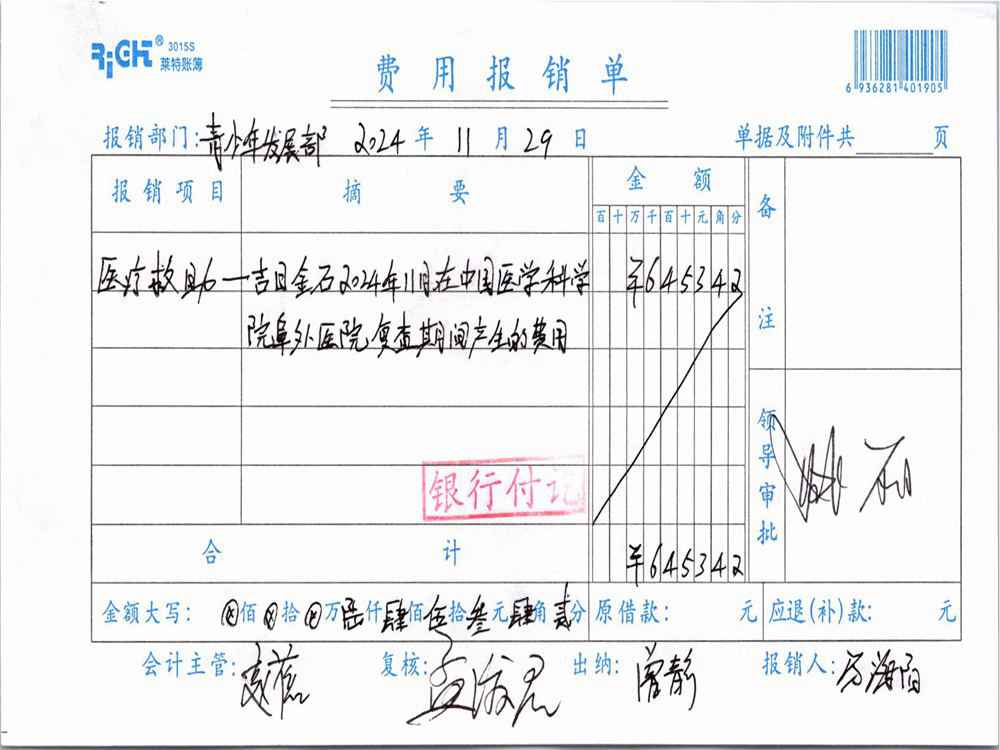 RiGHT® 3015S
莱特账簿
费用报销单
6 936281 401905
报销部门:青少年发展部 2024年11月29日 单据及附件共 页
报销项目 摘要 金额 备注
百十万千百十元角分
医疗救助一吉日金石2024年11月在中国医学科学 ¥645342
院阜外医院复查期间产生的费用
领导审批
银行付讫
合计 ¥645342
金额大写: ⊗佰⊗拾⊗万陆仟肆佰伍拾叁元肆角贰分 原借款: 元 应退(补)款: 元
会计主管: 复核: 出纳:曾静 报销人:万海阳